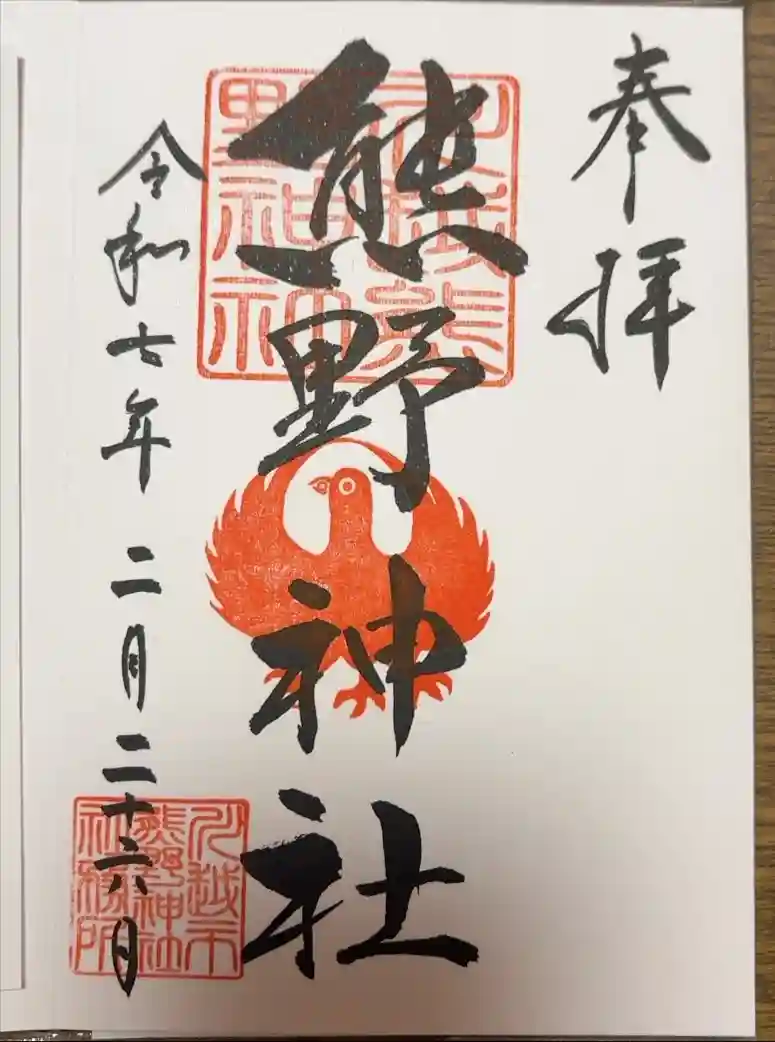 奉拝
熊野神社
令和七年 二月二十六日
川越熊野神社
川越市熊野神社社務所